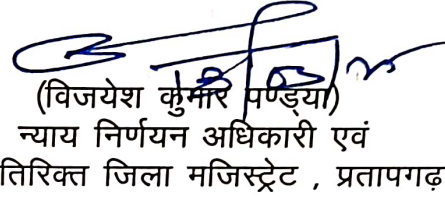 (विजयेश कुमार पण्ड्या)
न्याय निर्णयन अधिकारी एवं
तिरिक्त जिला मजिस्ट्रेट , प्रतापगढ़